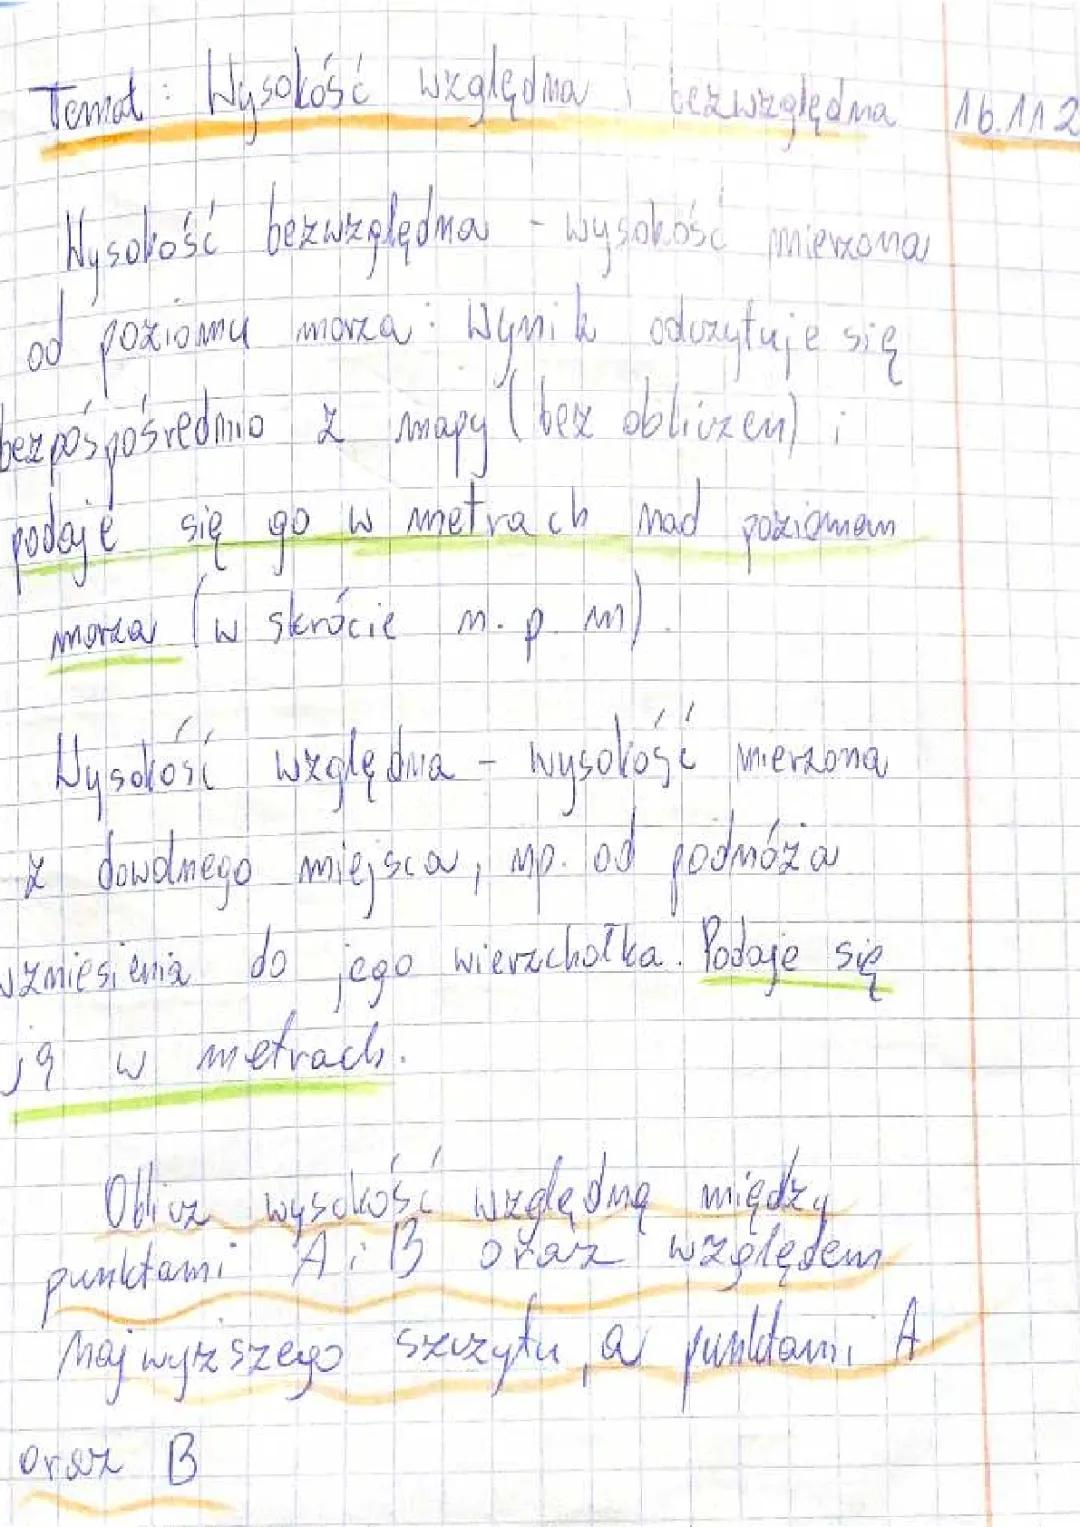 Temat: Wysokość względna i bezwzględna 16.11.2
Wysokość bezwzględna - wysokość mierzona
od poziomu morza. Wynik odczytuje się
bezpośpośrednio z mapy (bez obliczen) i
podaje się go w metrach nad poziomem
morza (w skrócie m. p. m).
Wysokość względna - wysokość mierzona
z dowolnego miejsca, np. od podnóża
wzniesienia do jego wierzchołka. Podaje się
ją w metrach.
Oblicz wysokość względną między
punktami A i B oraz względem
najwyższego szczytu, a punktami A
oraz B